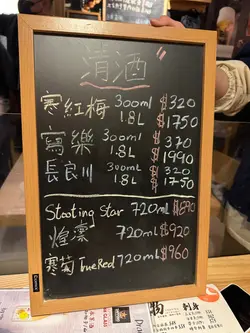 清酒
寒紅梅 300ml $320
1.8L $1750
寫樂 300ml $370
1.8L 1990
長良川 300ml 320
1.8L 1750
Stooting Star 720ml $890
煌凛 720ml $920
寒菊 TrueRed 720ml $960